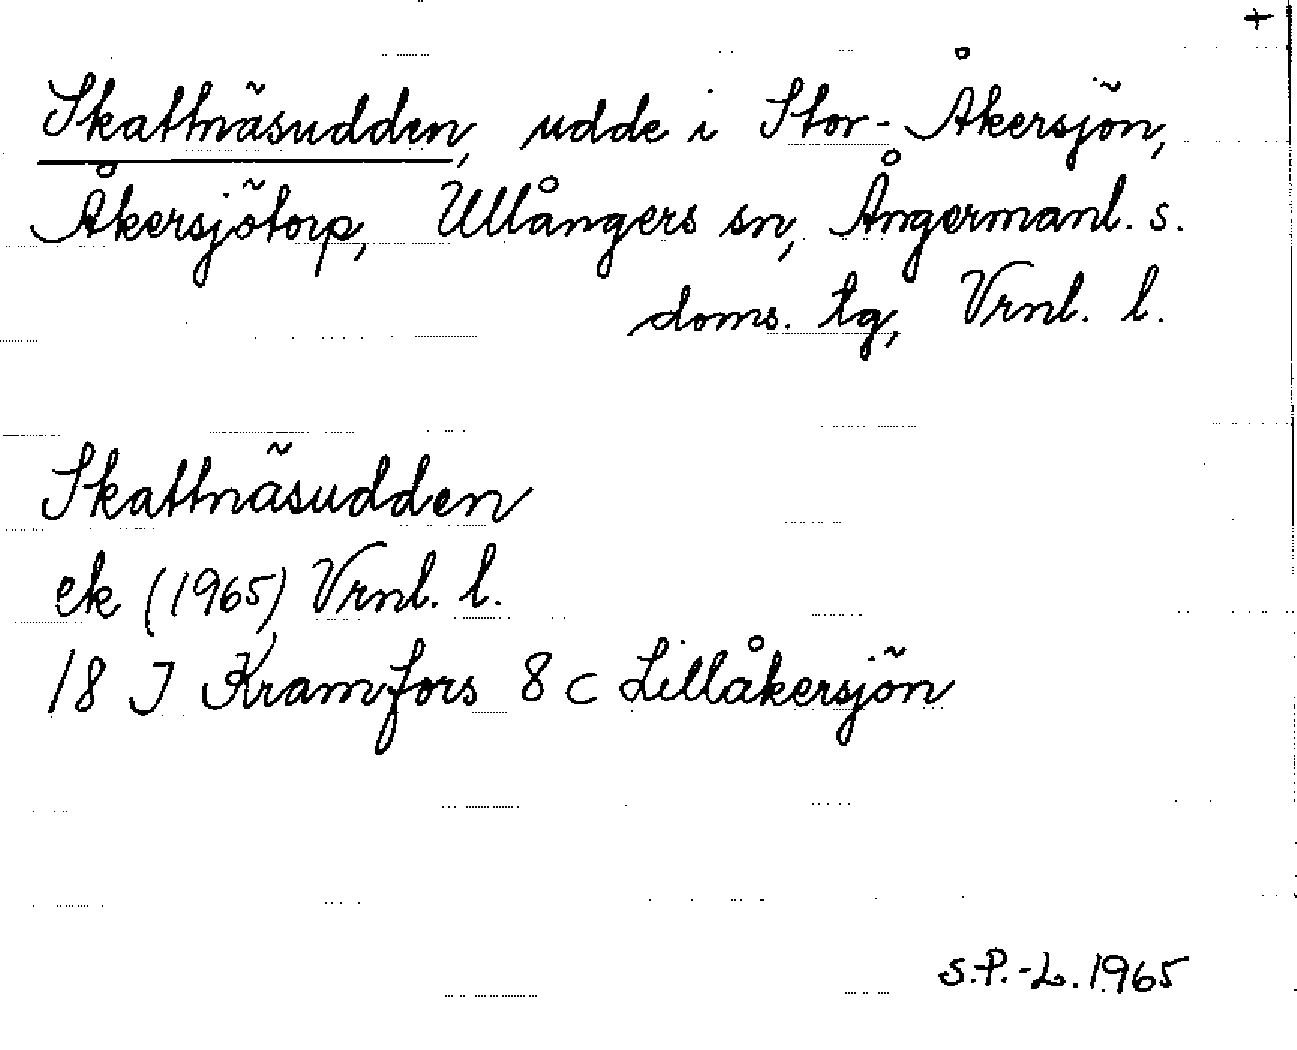 +
Skattnäsudden, udde i Stor-Åkersjön,
Åkersjötorp, Ullångers sn, Ångermanl. s.
doms. tg, Vrnl. l.
Skattnäsudden
ek (1965) Vrnl. l.
18 J Kramfors 8 c Lillåkersjön
S.P.-L. 1965